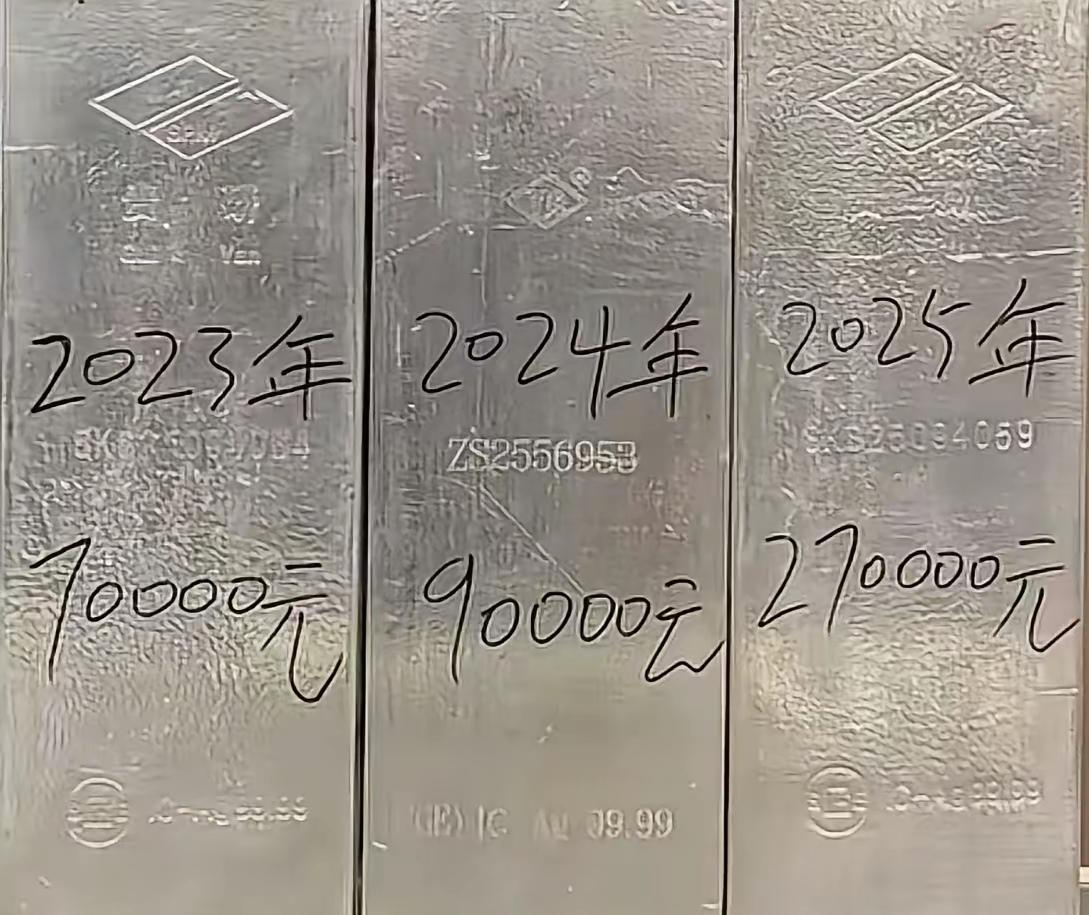 2023年
70000元
99.99
2024年
ZS2556953
90000元
IC Ag 99.99
2025年
270000元